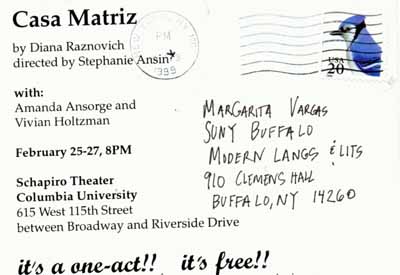 Casa Matriz
by Diana Raznovich
directed by Stephanie Ansin
with:
Amanda Ansorge and
Vivian Holtzman
February 25-27, 8PM
Schapiro Theater
Columbia University
615 West 115th Street
between Broadway and Riverside Drive
it's a one-act!! it's free!!
PM
USA
20
MARGARITA VARGAS
SUNY BUFFALO
MODERN LANGS & LITS
910 CLEMENS HALL
BUFFALO, NY 14260